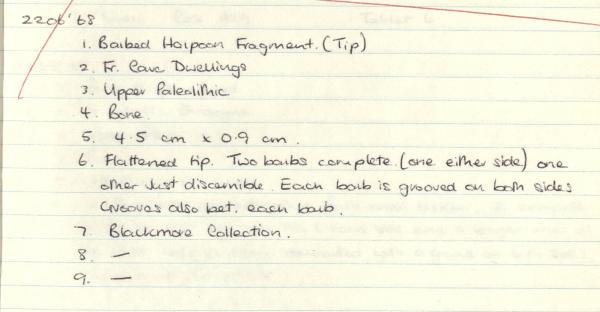 2206'68
1. Barbed Harpoon Fragment. (Tip)
2. Fr. Cave Dwellings
3. Upper Paleolithic
4. Bone.
5. 4.5 cm x 0.9 cm.
6. Flattened tip. Two barbs complete. (one either side) one
other just discernible. Each barb is grooved on both sides
Grooves also bet. each barb.
7. Blackmore Collection.
8. —
9. —